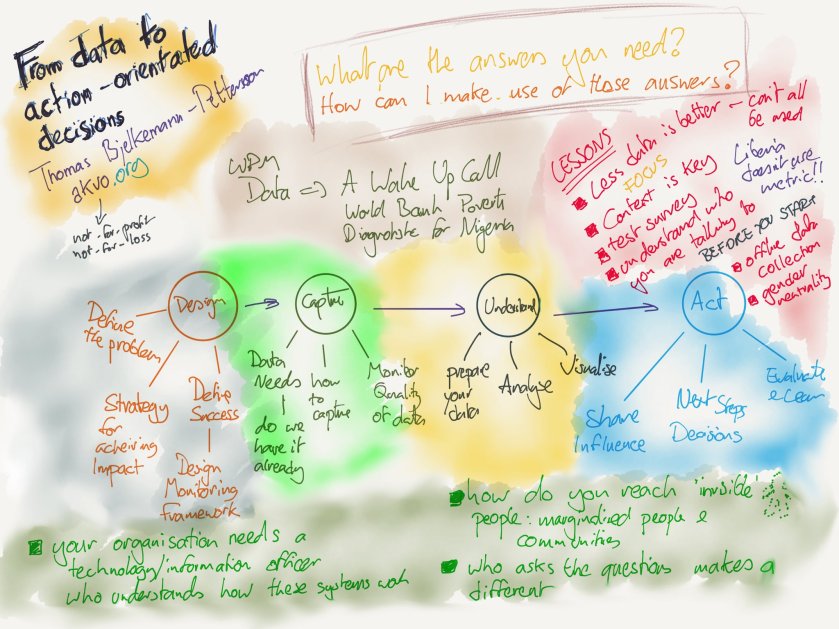 From data to
action-orientated
decisions
Thomas Bjelkemann-Pettersson
akvo.org
not-for-profit
not-for-loss
What are the answers you need?
How can I make use of those answers?
WPM
Data => A Wake Up Call
World Bank Poverti
Diagnostic for Nigeria
LESSONS
Less data is better - can't all
be used
FOCUS
Context is key
test survey
understand who
you are talking to
Liberia
doesn't use
metric!!
BEFORE YOU START
offline data
collection
gender
neutrality
Design
Define
the problem
Strategy
for
acheiving
Impact
Define
Success
Design
Monitoring
framework
Capture
Data
Needs
do we
have it
already
how
to
capture
Monitor
Quality
of data
Understand
prepare
your
data
Analyse
Visualise
Act
Share
Influence
Next Steps
Decisions
Evaluate
& Learn
your organisation needs a
technology/information officer
who understands how these systems work
how do you reach 'invisible'
people: marginalized people &
communities
who asks the questions makes a
different